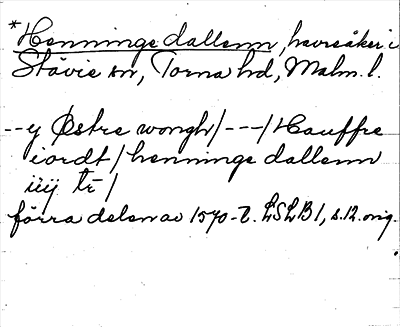 *Henninge dallenn, havreåker i
Stävie sn, Torna hd, Malm. l.
--y Østre wongh/---/Hauffre
iordt/henninge dallenn
iiij tr/
förra delen av 1570-t. LSLB 1, s.12. orig.